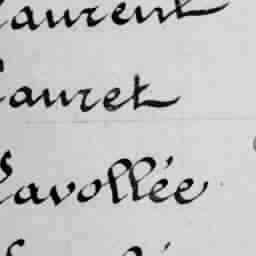 Laurent
Lauret
Lavollée